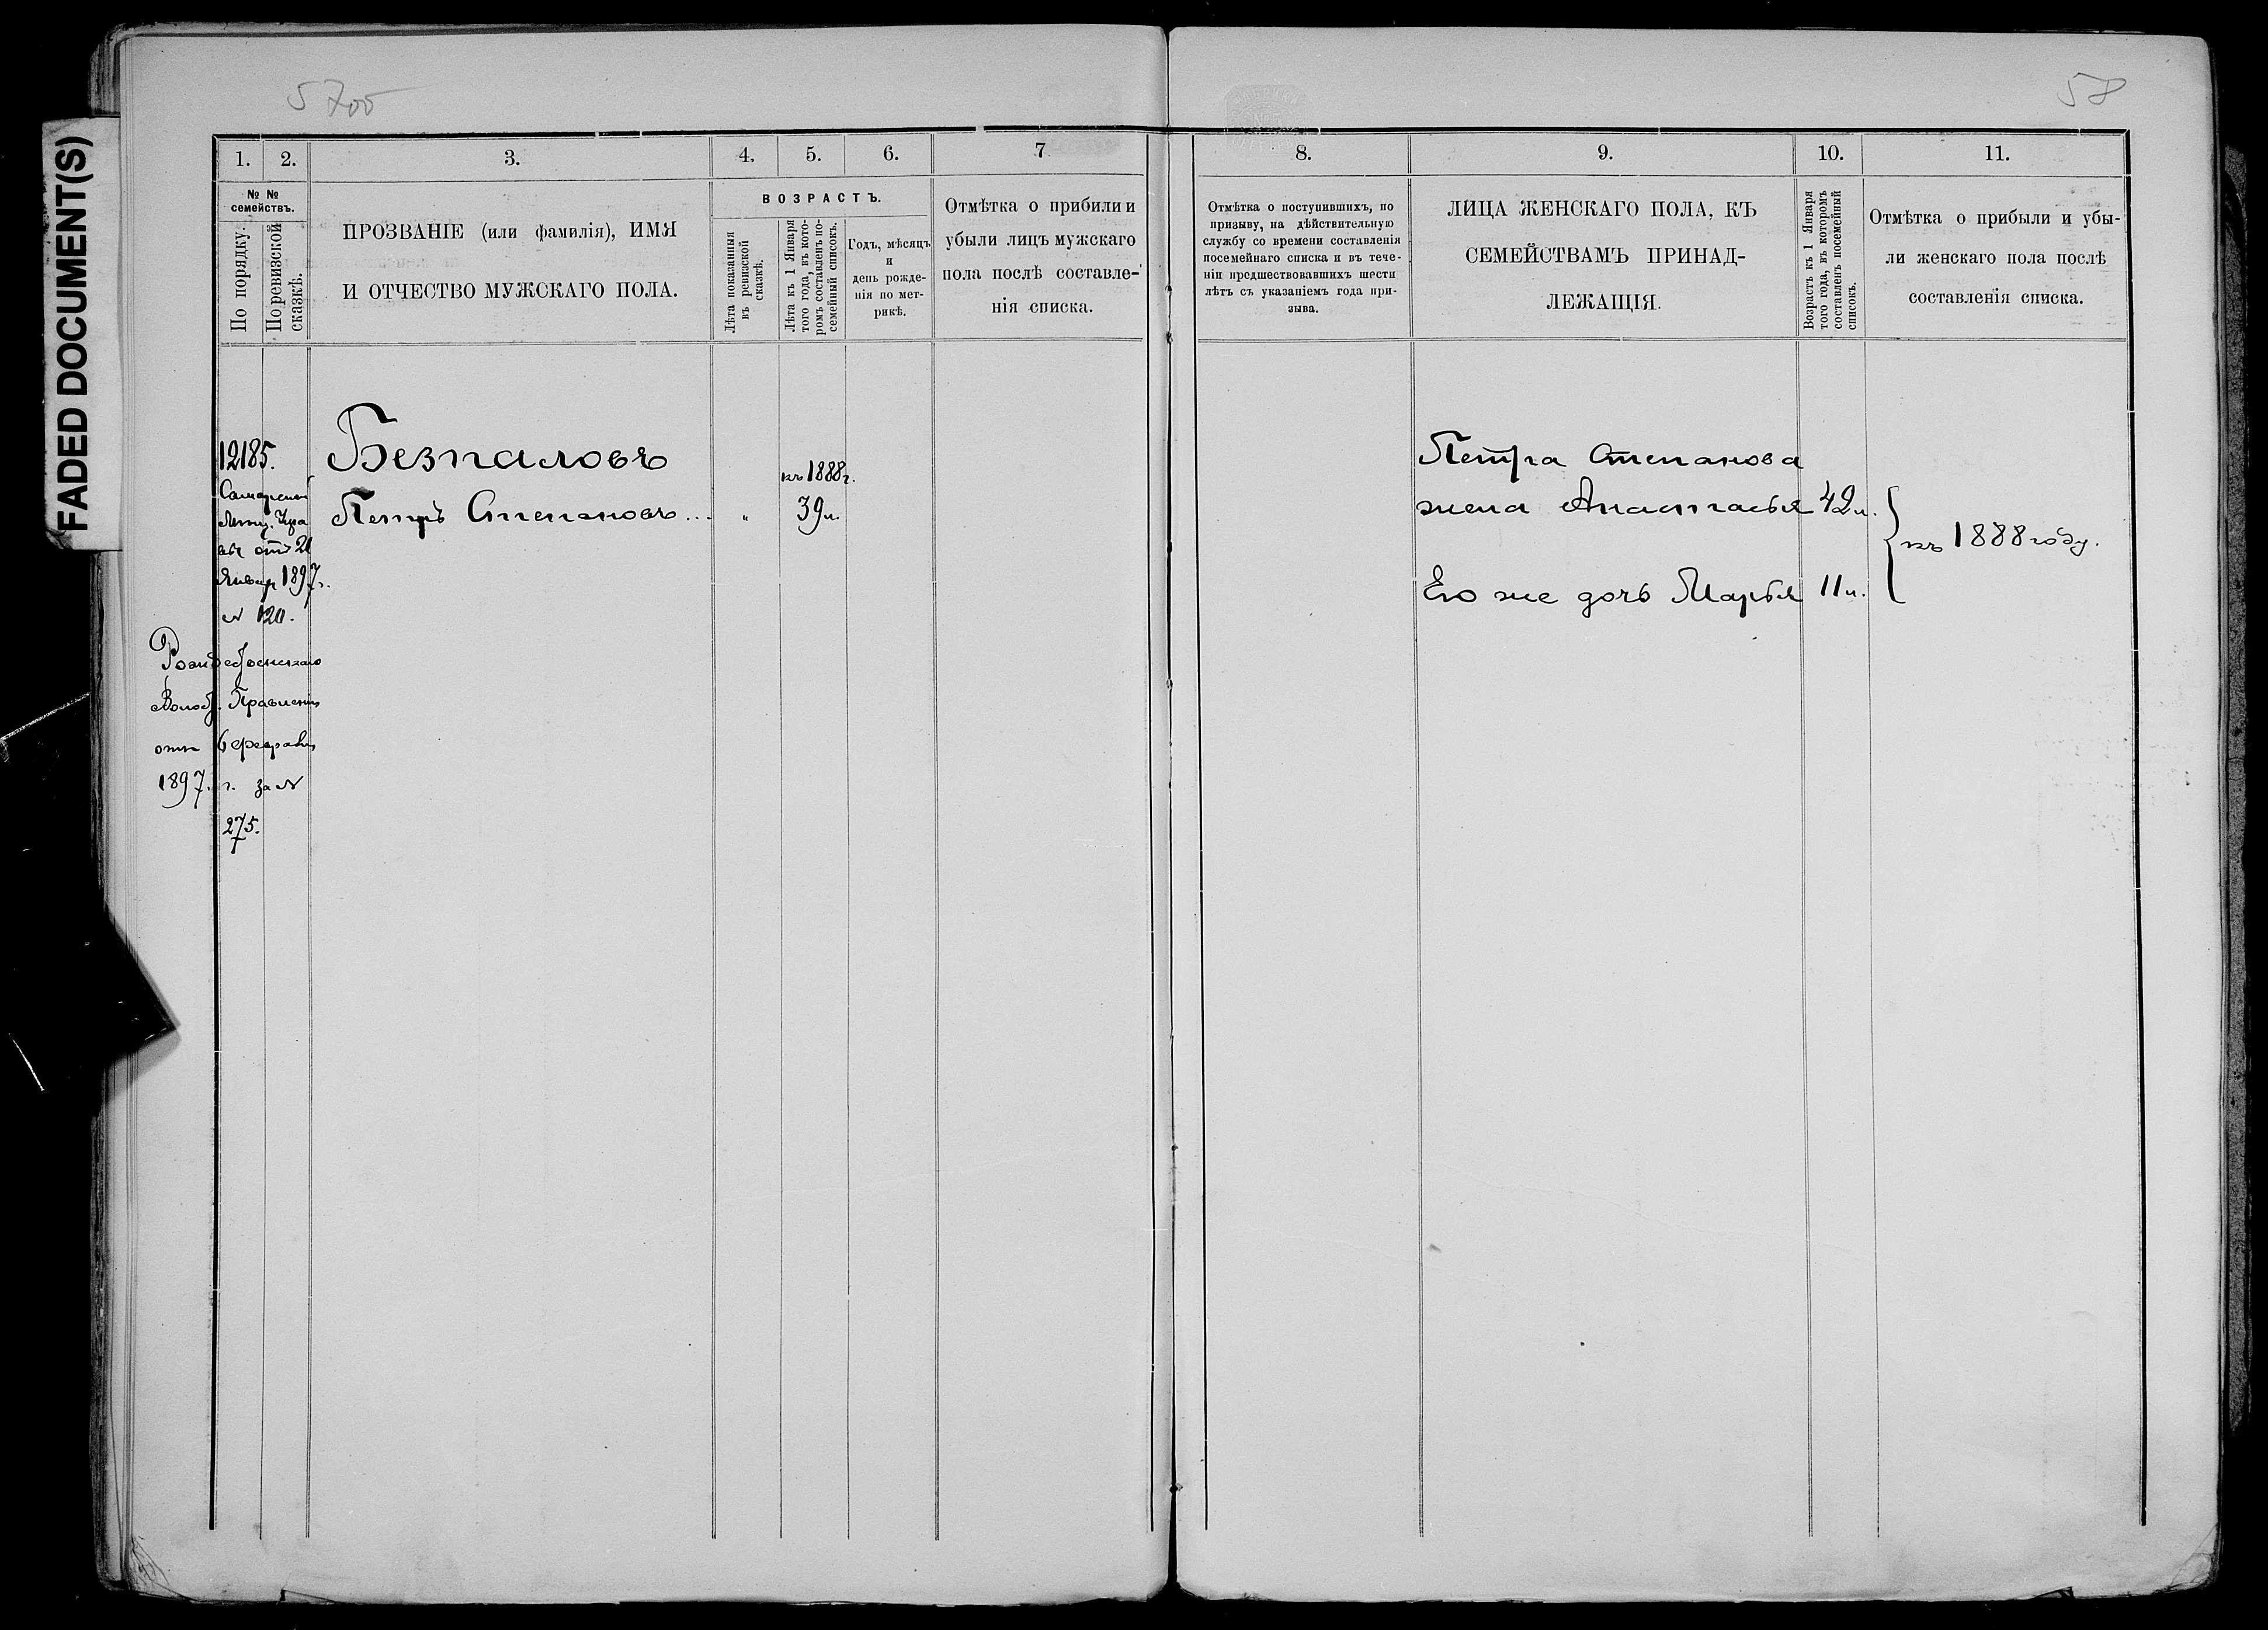 FADED DOCUMENT(S)
57об
58
1. 2. 3. 4. 5. 6. 7
№ № семействъ.
По порядку.
По ревизской сказкѣ.
ПРОЗВАНІЕ (или фамилія), ИМЯ
И ОТЧЕСТВО МУЖСКАГО ПОЛА.
ВОЗРАСТЪ.
Лѣта показанныя
въ ревизской
сказкѣ.
Лѣта къ 1 Января
того года, въ кото-
ромъ составленъ по-
семейный списокъ.
Годъ, мѣсяцъ
и
день рожде-
нія по мет-
рикѣ.
Отмѣтка о прибыли и
убыли лицъ мужскаго
пола послѣ составле-
нія списка.
12185.
Безпаловъ
къ 1888 г.
Петръ Степановъ... „ 39 л.
отъ 21
Январ 1897 г.
№ 120.
Рождественскаго
Волост. Правленія
отъ 6 февраля
1897 г. за №
275.
8. 9. 10. 11.
Отмѣтка о поступившихъ, по
призыву, на дѣйствительную
службу со времени составленія
посемейнаго списка и въ тече-
ніи предшествовавшихъ шести
лѣтъ съ указаніемъ года при-
зыва.
ЛИЦА ЖЕНСКАГО ПОЛА, КЪ
СЕМЕЙСТВАМЪ ПРИНАД-
ЛЕЖАЩІЯ.
Возрастъ къ 1 Января
того года, въ которомъ
составленъ посемейный
списокъ.
Отмѣтка о прибыли и убы-
ли женскаго пола послѣ
составленія списка.
Петра Степанова
жена Анастасья 42 л.
къ 1888 году.
Его же дочь Марья 11 л.